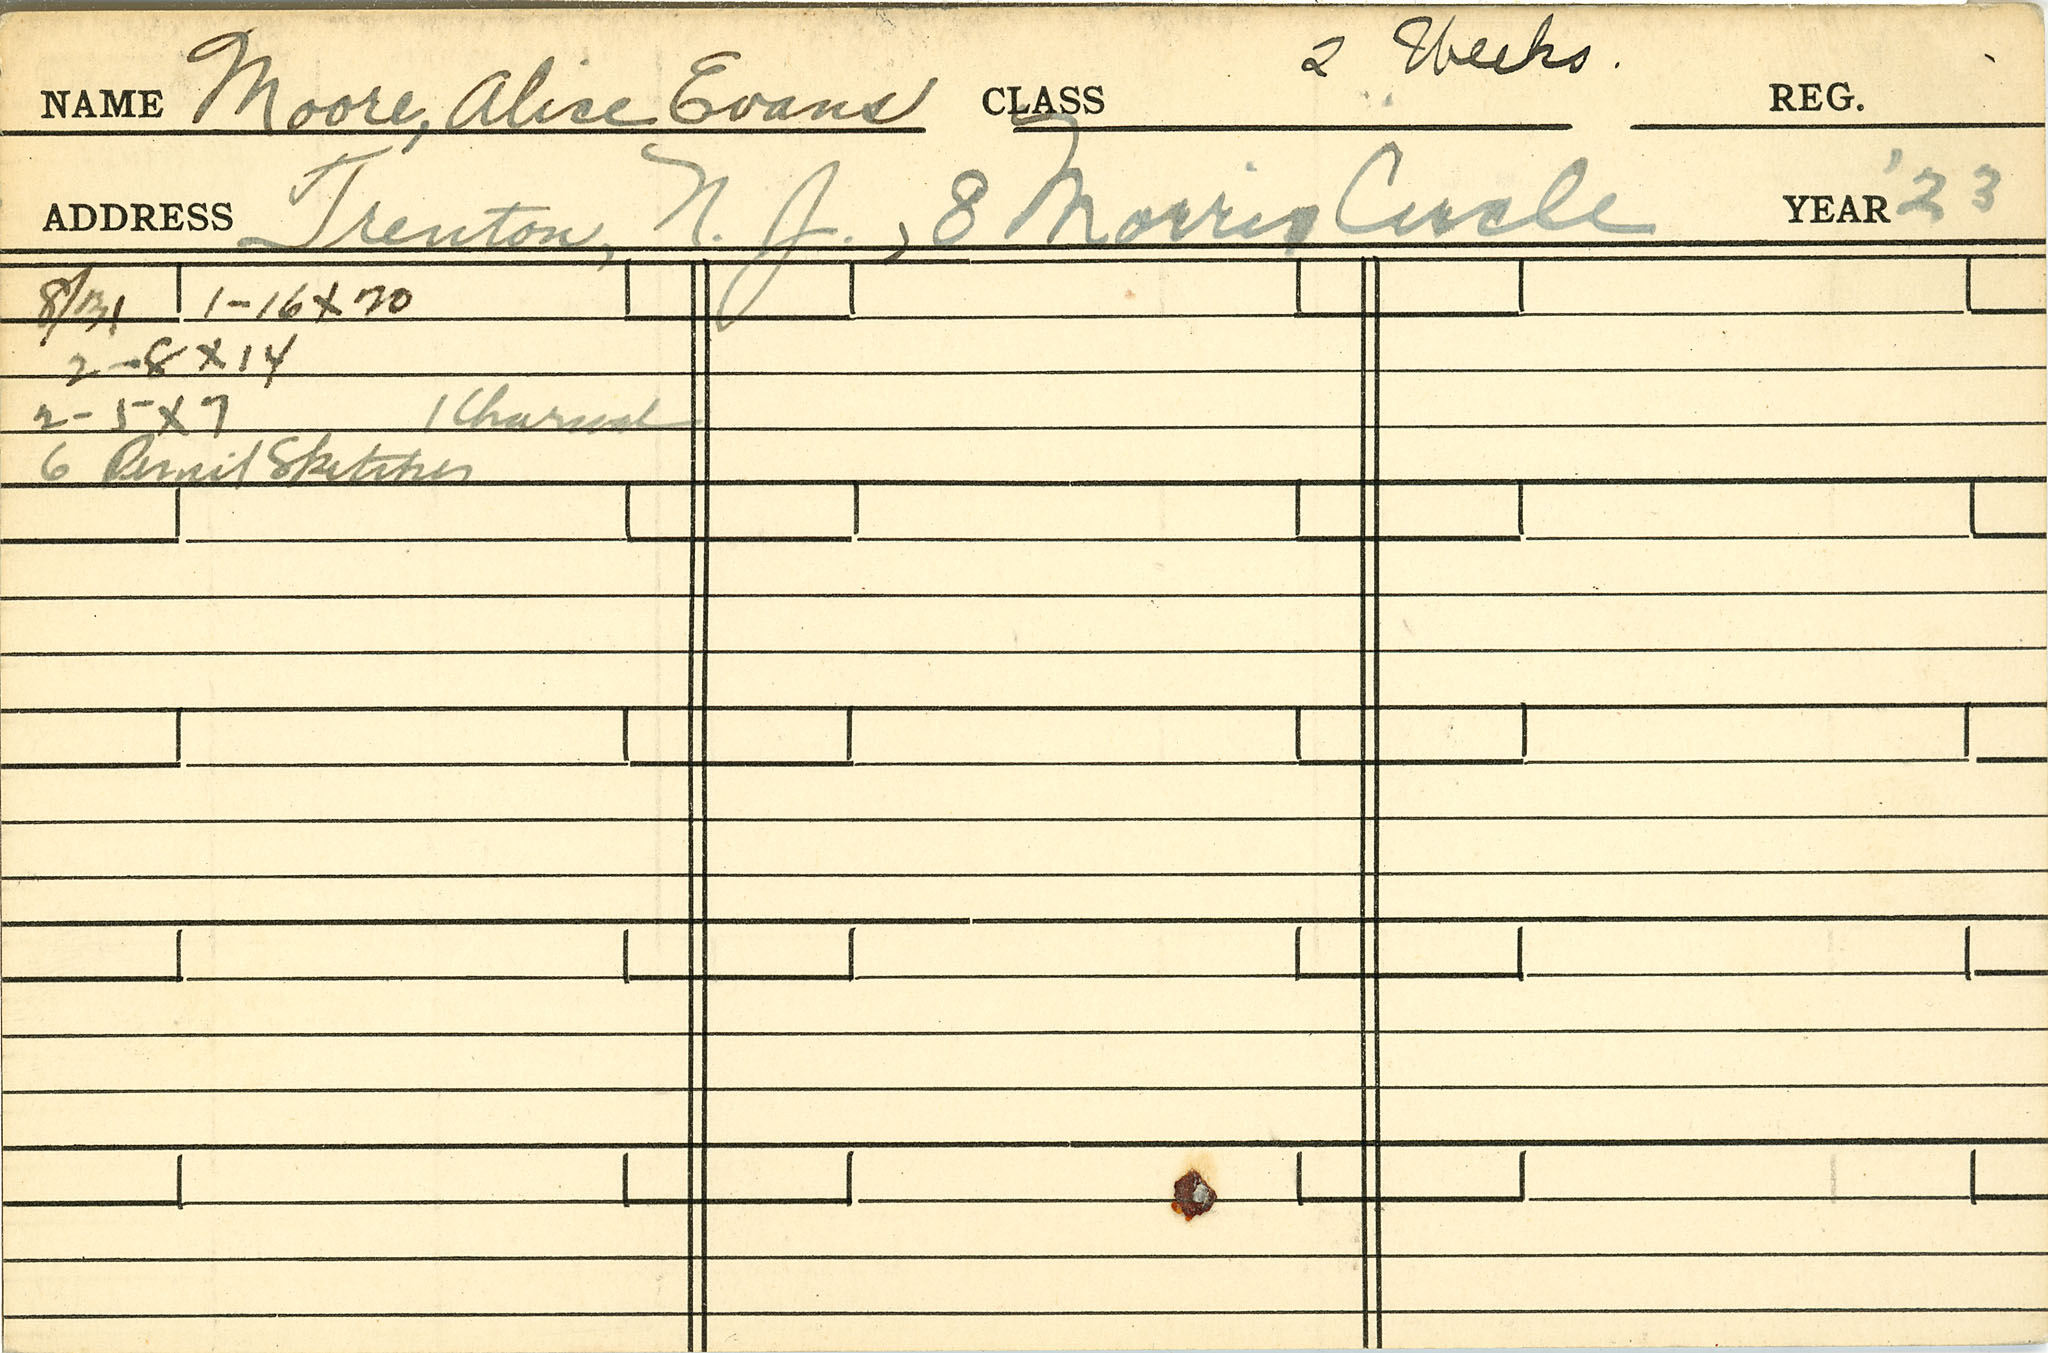 NAME Moore, Alice Evans CLASS 2 Weeks. REG.
ADDRESS Trenton, N. J., 8 Morris Circle YEAR '23
8/31 1-16x20
2-8x14
2-5x7 1 Charcoal
6 Pencil Sketches